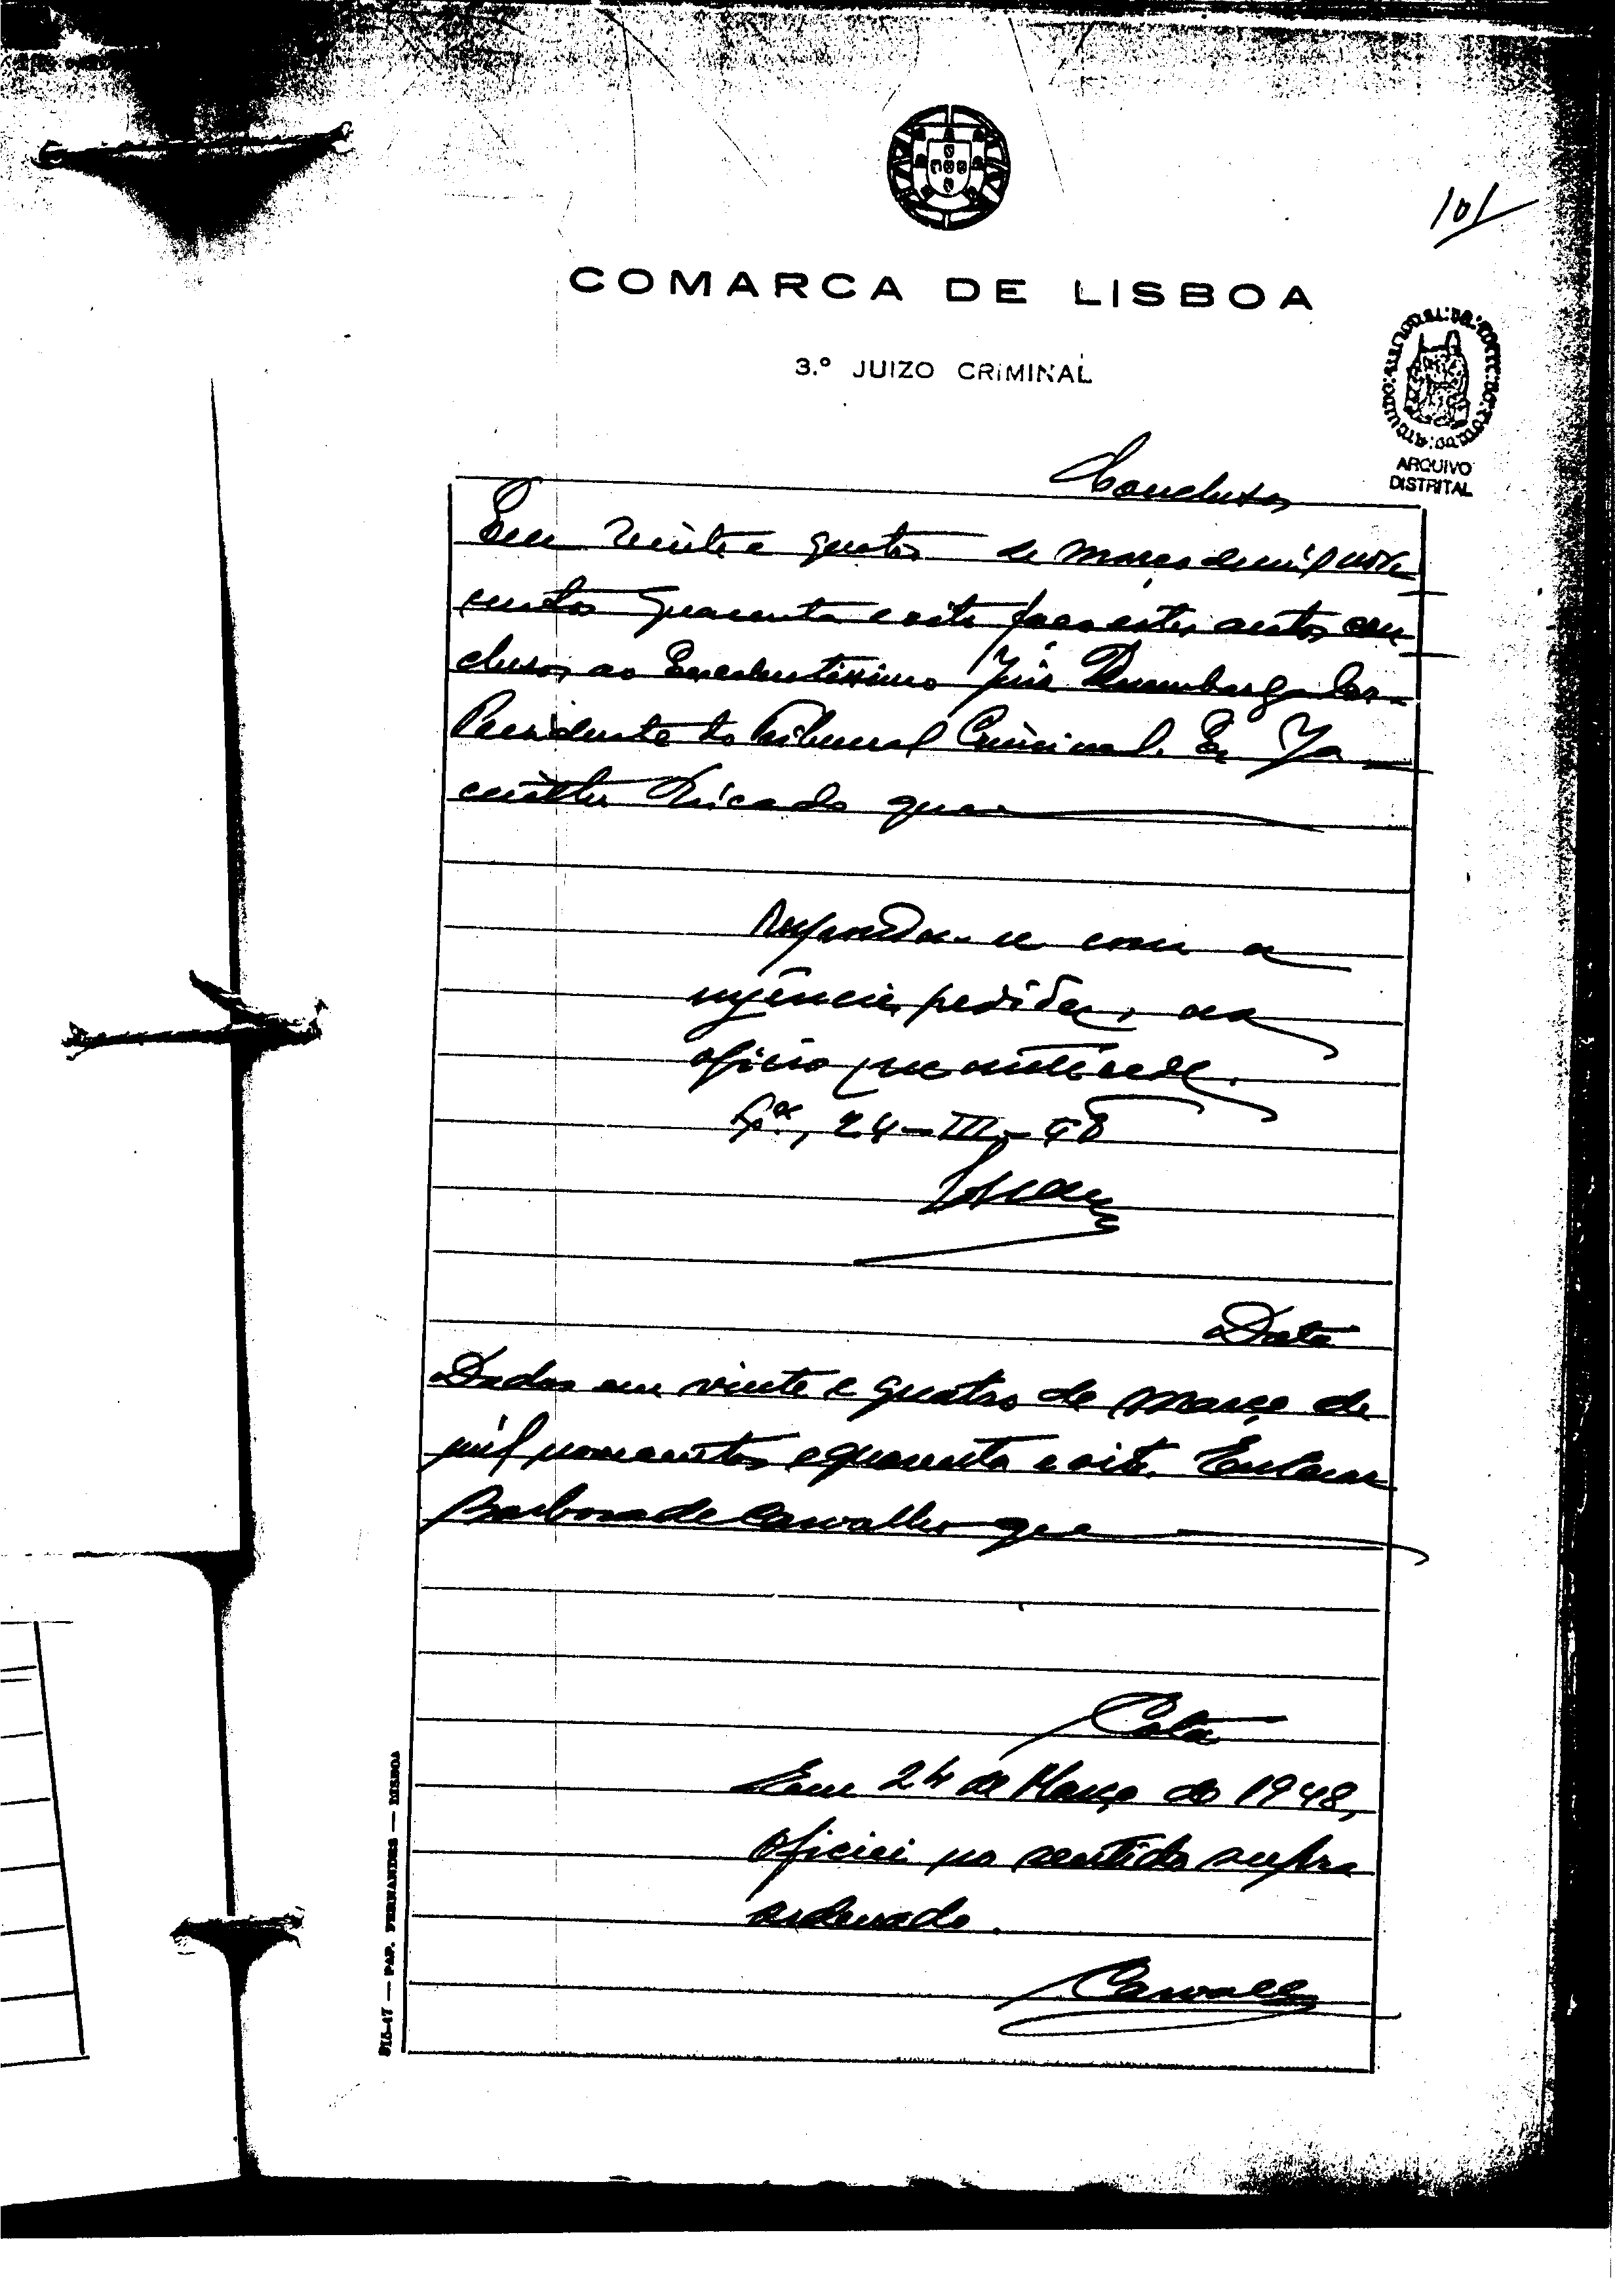 101
COMARCA DE LISBOA
3.º JUIZO CRIMINAL
ARQUIVO
DISTRITAL
Conclusos
Em vinte e quatro de março de mil nove
centos quarenta e oito faço estes autos con
clusos ao Excelentissimo Juiz Desembargador
Presidente do Tribunal Criminal. Eu,
que
Responda-se com a
urgência pedida, ao
oficio que antecede.
Lxª, 24-III-48
Data
Dados em vinte e quatro de março de
mil novecentos e quarenta e oito.
Barbosa de Carvalho que
Cota
Em 24 de Março de 1948,
oficiei no sentido supra
ordenado.
Carvalho
515-47 — PAP. FERNANDES — LISBOA